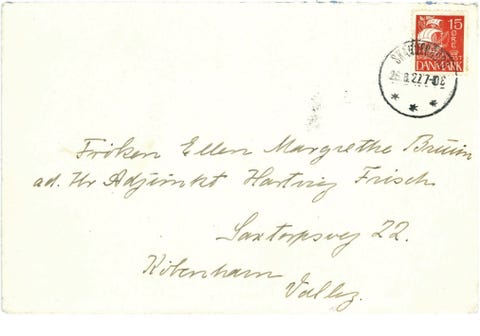 15
ØRE
DANMARK
7-8E
Frøken Ellen Margrethe Bruun
ad. Hr Adjunkt Hartvig Frisch
Saxtorpsvej 22.
København
Valby.